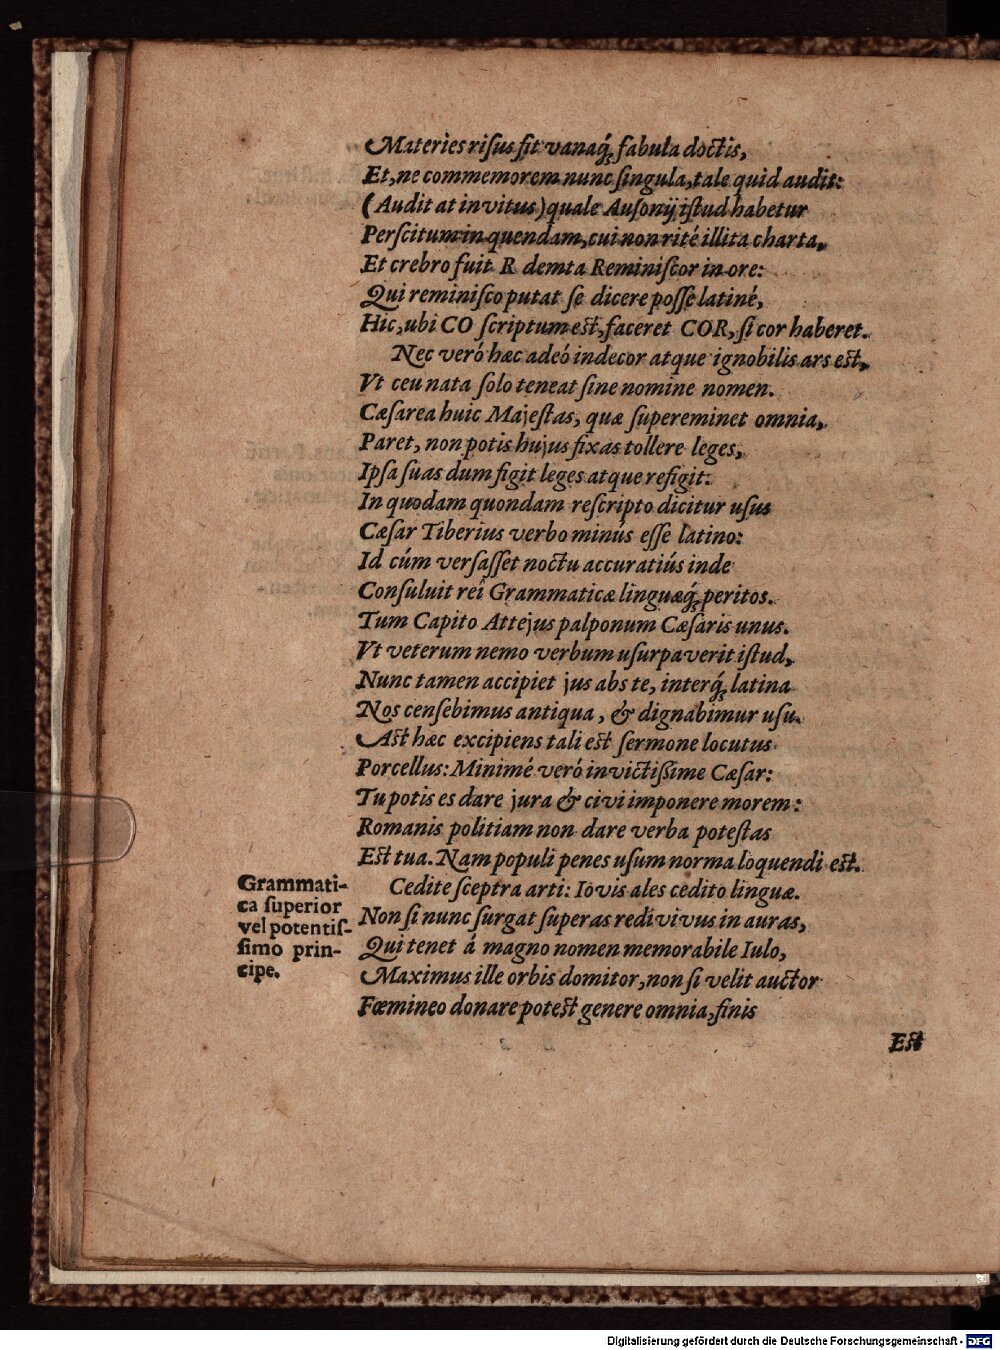 Materies risus fit vanaq́; fabula doctis,
Et, ne commemorem nunc singula, tale quid audit:
(Audit at invitus) quale Ausonij istud habetur
Perscitum in quendam, cui non rité illita charta,
Et crebro fuit R demta Reminiscor in ore:
Qui reminisco putat se dicere posse latiné,
Hic, ubi CO scriptum est, faceret COR, si cor haberet.
Nec veró hæc adeó indecor atque ignobilis ars est,
Vt ceu nata solo teneat sine nomine nomen.
Cæsarea huic Majestas, quæ supereminet omnia,
Paret, non potis hujus fixas tollere leges,
Ipsa suas dum figit leges atque refigit.
In quodam quondam rescripto dicitur usus
Cæsar Tiberius verbo minús esse latino:
Id cúm versasset noctu accuratiús inde
Consuluit rei Grammaticæ linguæq́; peritos.
Tum Capito Attejus palponum Cæsaris unus.
Vt veterum nemo verbum usurpaverit istud,
Nunc tamen accipiet jus abs te, interq́; latina
Nos censebimus antiqua, & dignabimur usu.
Ast hæc excipiens tali est sermone locutus
Porcellus: Minimé veró invictissime Cæsar:
Tu potis es dare jura & civi imponere morem:
Romanis politiam non dare verba potestas
Est tua. Nam populi penes usum norma loquendi est.
Grammati-
ca superior
vel potentis-
simo prin-
cipe.
Cedite sceptra arti: Iovis ales cedito linguæ.
Non si nunc surgat superas redivivus in auras,
Qui tenet á magno nomen memorabile Iulo,
Maximus ille orbis domitor, non si velit auctor
Fœmineo donare potest genere omnia, finis
Est
Digitalisierung gefördert durch die Deutsche Forschungsgemeinschaft - DFG